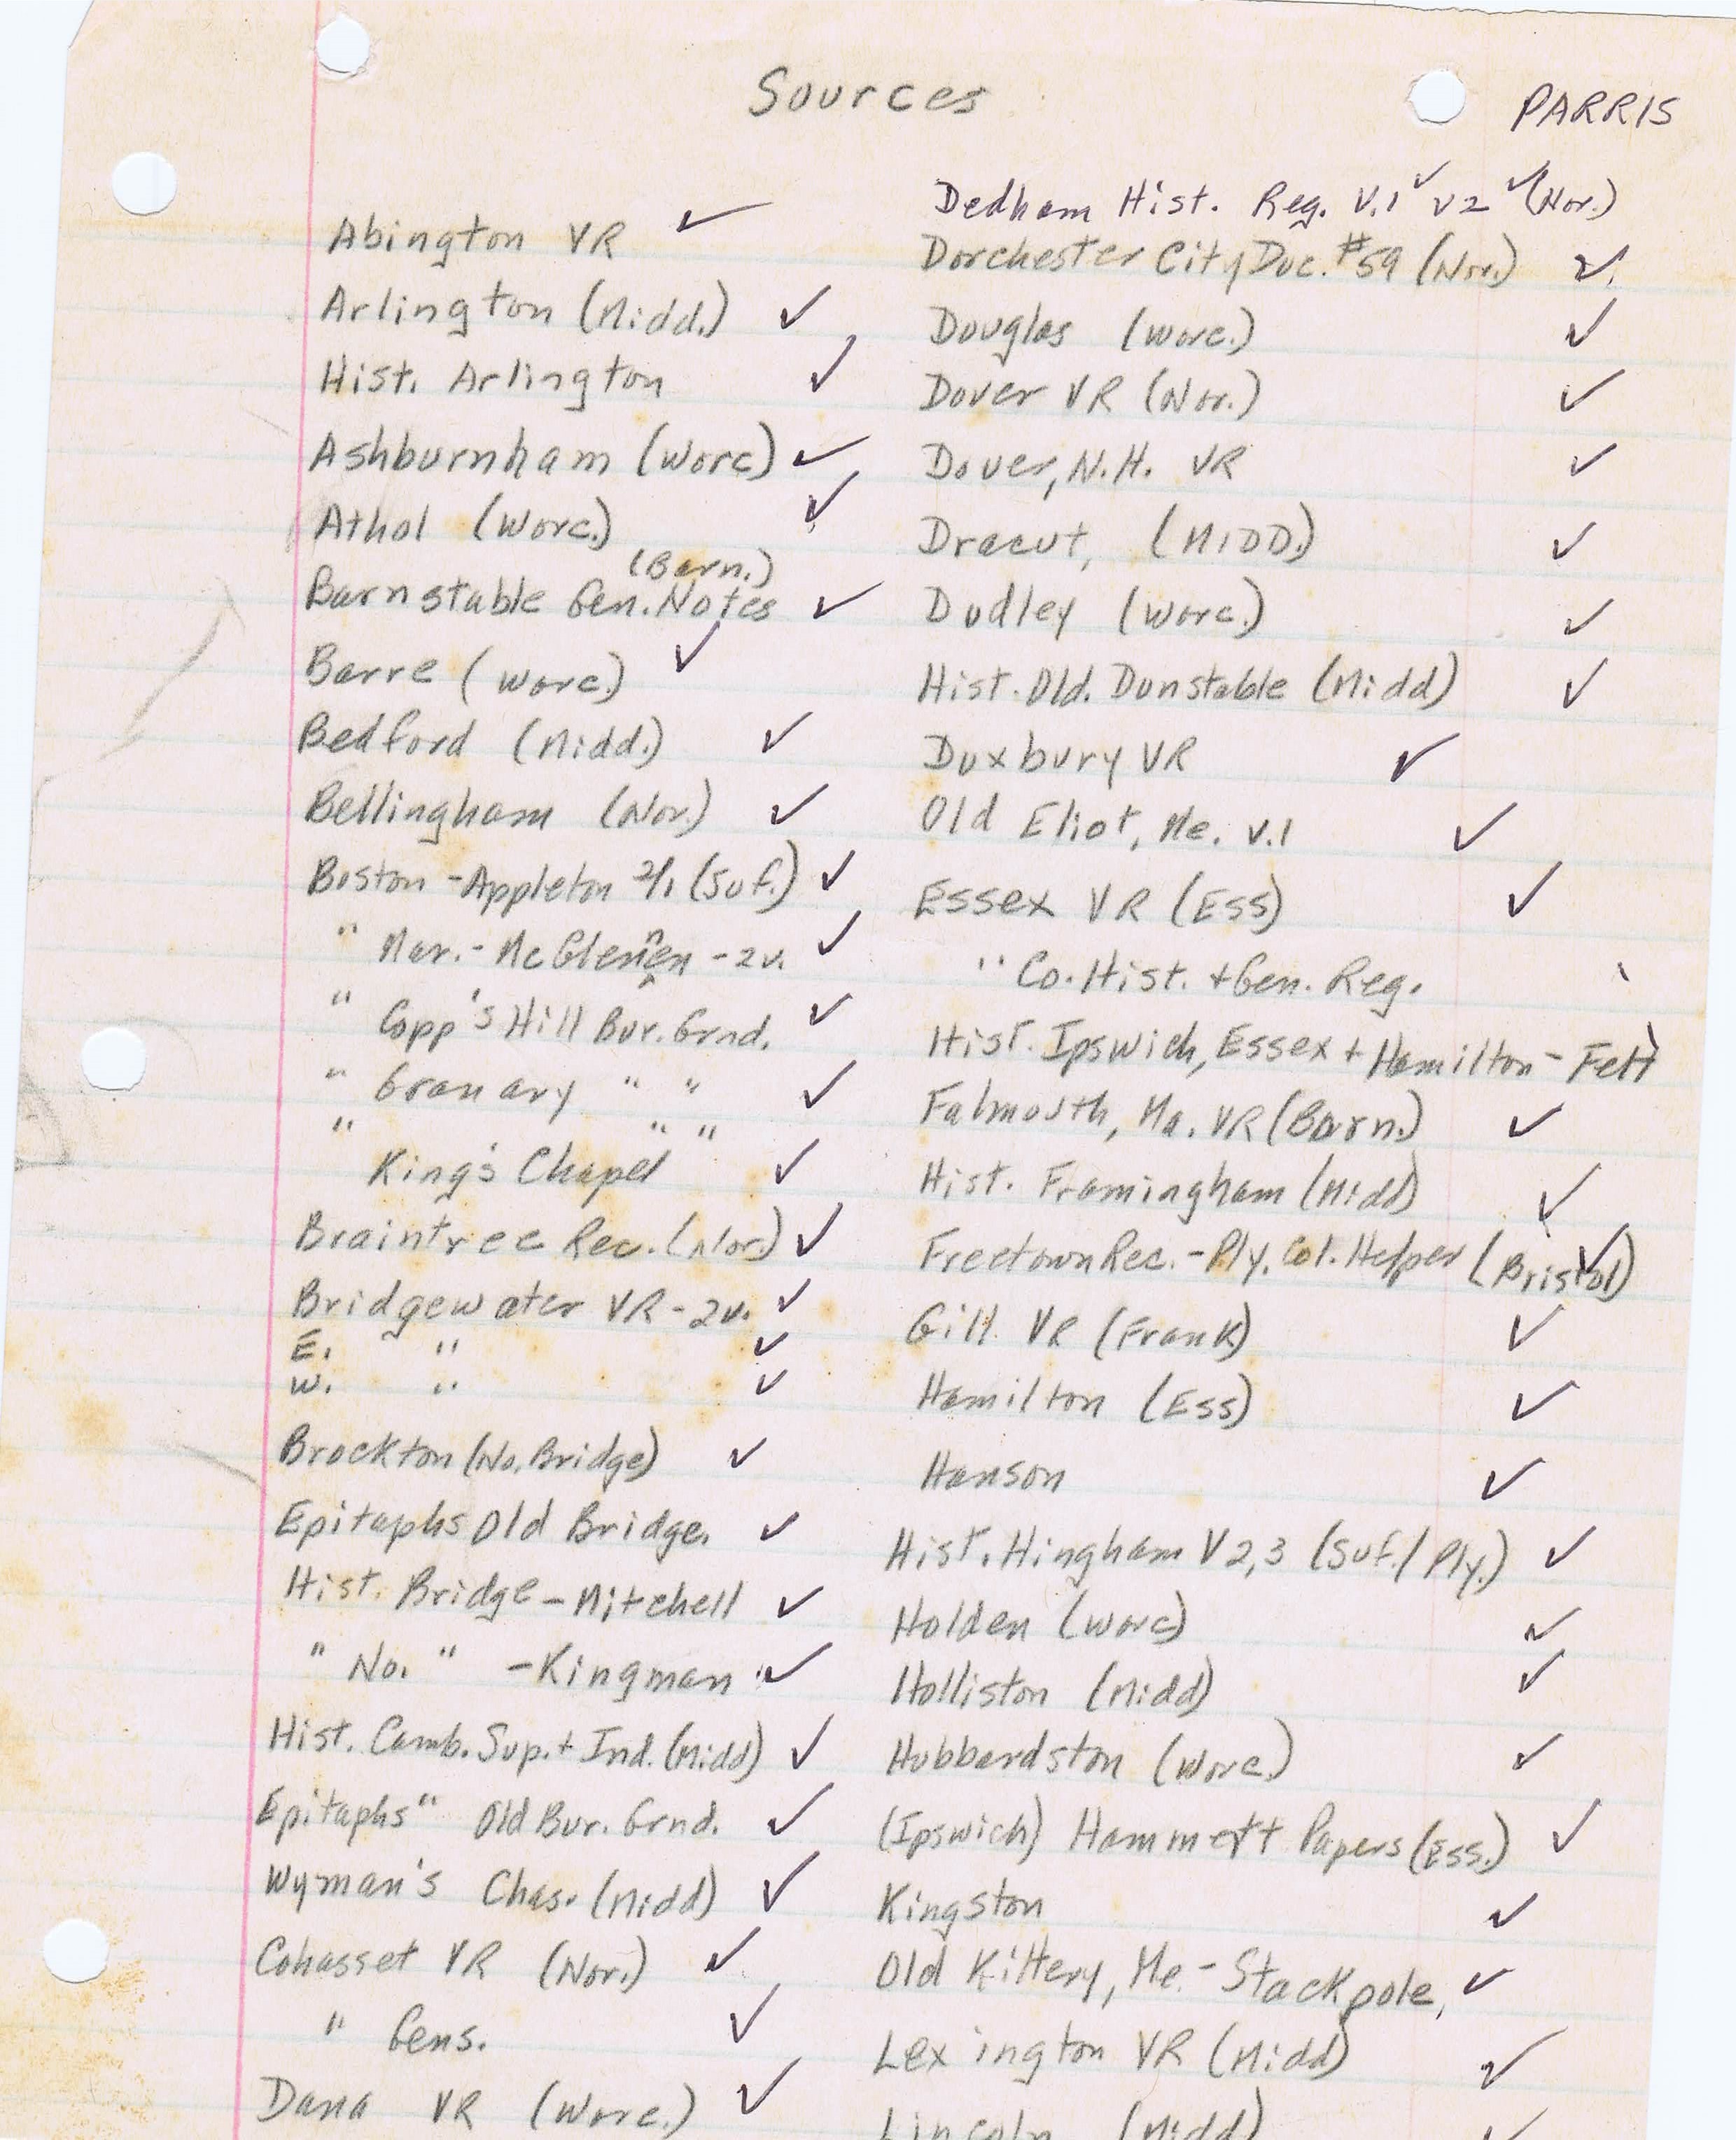 Sources
PARRIS
Abington VR ✓
Arlington (Midd.) ✓
Hist. Arlington ✓
Ashburnham (Worc) ✓
Athol (Worc.) ✓
(Barn.)
Barnstable Gen. Notes ✓
Barre (Worc.) ✓
Bedford (Midd.) ✓
Bellingham (Nor.) ✓
Boston - Appleton 2/1 (Suf.) ✓
" Mar. - McGlenen - 2v. ✓
" Copp's Hill Bur. Grnd. ✓
" Granary " " ✓
" " "
King's Chapel ✓
Braintree Rec. (Nor.) ✓
Bridgewater VR - 2v. ✓
E. " ✓
W. " ✓
Brockton (No. Bridge) ✓
Epitaphs Old Bridge. ✓
Hist. Bridge - Mitchell ✓
" No. " - Kingman ✓
Hist. Camb. Sup. + Ind. (Midd) ✓
Epitaphs " Old Bur. Grnd. ✓
Wyman's Chas. (Midd) ✓
Cohasset VR (Nor.) ✓
" Gens. ✓
Dana VR (Worc.) ✓
Dedham Hist. Reg. V.1 ✓ V2 ✓ (Nor.)
Dorchester City Doc. #59 (Nor.) ✓
Douglas (Worc.) ✓
Dover VR (Nor.) ✓
Dover, N.H. VR ✓
Dracut, (MIDD.) ✓
Dudley (Worc.) ✓
Hist. Old. Dunstable (Midd) ✓
Duxbury VR ✓
Old Eliot, Me. v.1 ✓
Essex VR (Ess) ✓
" Co. Hist. + Gen. Reg.
Hist. Ipswich, Essex + Hamilton - Felt
Falmouth, Ma. VR (Barn.) ✓
Hist. Framingham (Midd) ✓
Freetown Rec. - Ply. Col. Helper (Bristol) ✓
Gill VR (Frank) ✓
Hamilton (Ess) ✓
Hanson ✓
Hist. Hingham V 2,3 (Suf./Ply.) ✓
Holden (Worc) ✓
Holliston (Midd) ✓
Hubbardston (Worc.) ✓
(Ipswich) Hammett Papers (Ess.) ✓
Kingston ✓
Old Kittery, Me. - Stackpole, ✓
Lexington VR (Midd) ✓
Lincoln (Midd) ✓